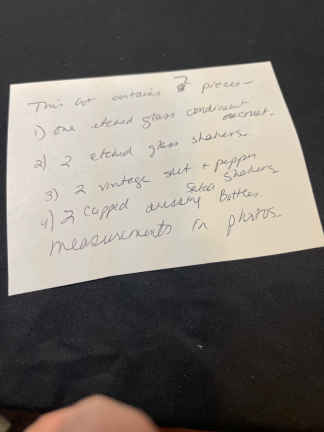 This lot contains 7 pieces -
1) one etched glass condiment decanter.
2) 2 etched glass shakers.
3) 2 vintage salt + pepper shakers
4) 2 capped salad dressing bottles.
measurements in photos.